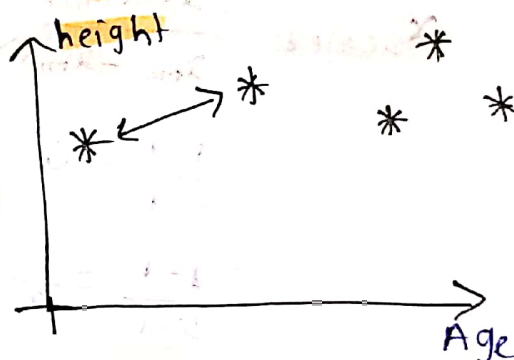 height
Age